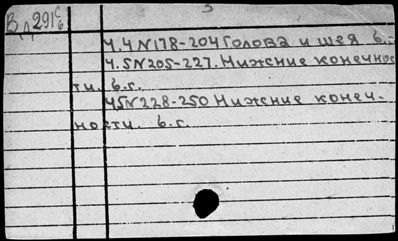 В 291 с/6
Д
3
Ч.4 N178-204 Голова и шея б.-
Ч.5 N205-227. Нижение конечнос
ти. б.г.
Ч5 N228-250 Нижение конеч-
ности. б.г.